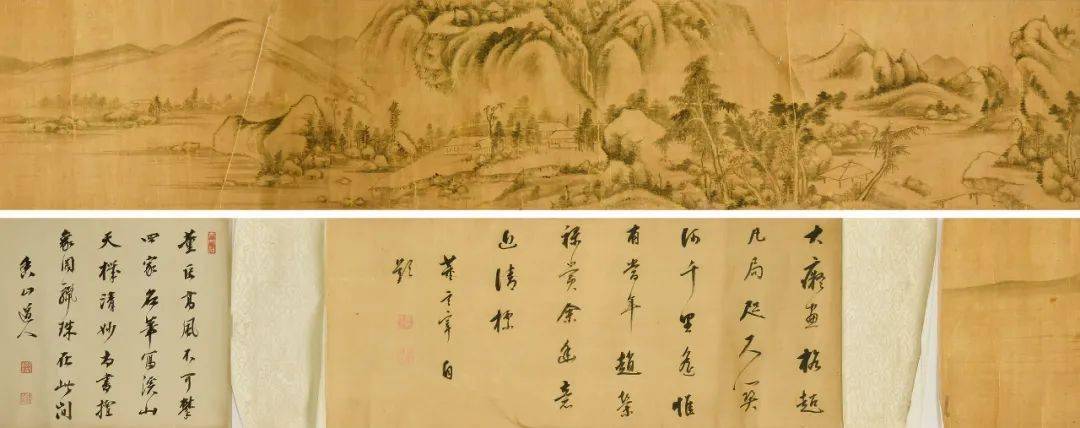 大癡畫格超
凡局咫尺關
河千里遙惟
有當年趙榮
祿賞余幽意
近清標
董其昌自
題
董巨高風不可攀
四家名筆寫溪山
天機清妙為書
象罔驪珠在此間
香山道人